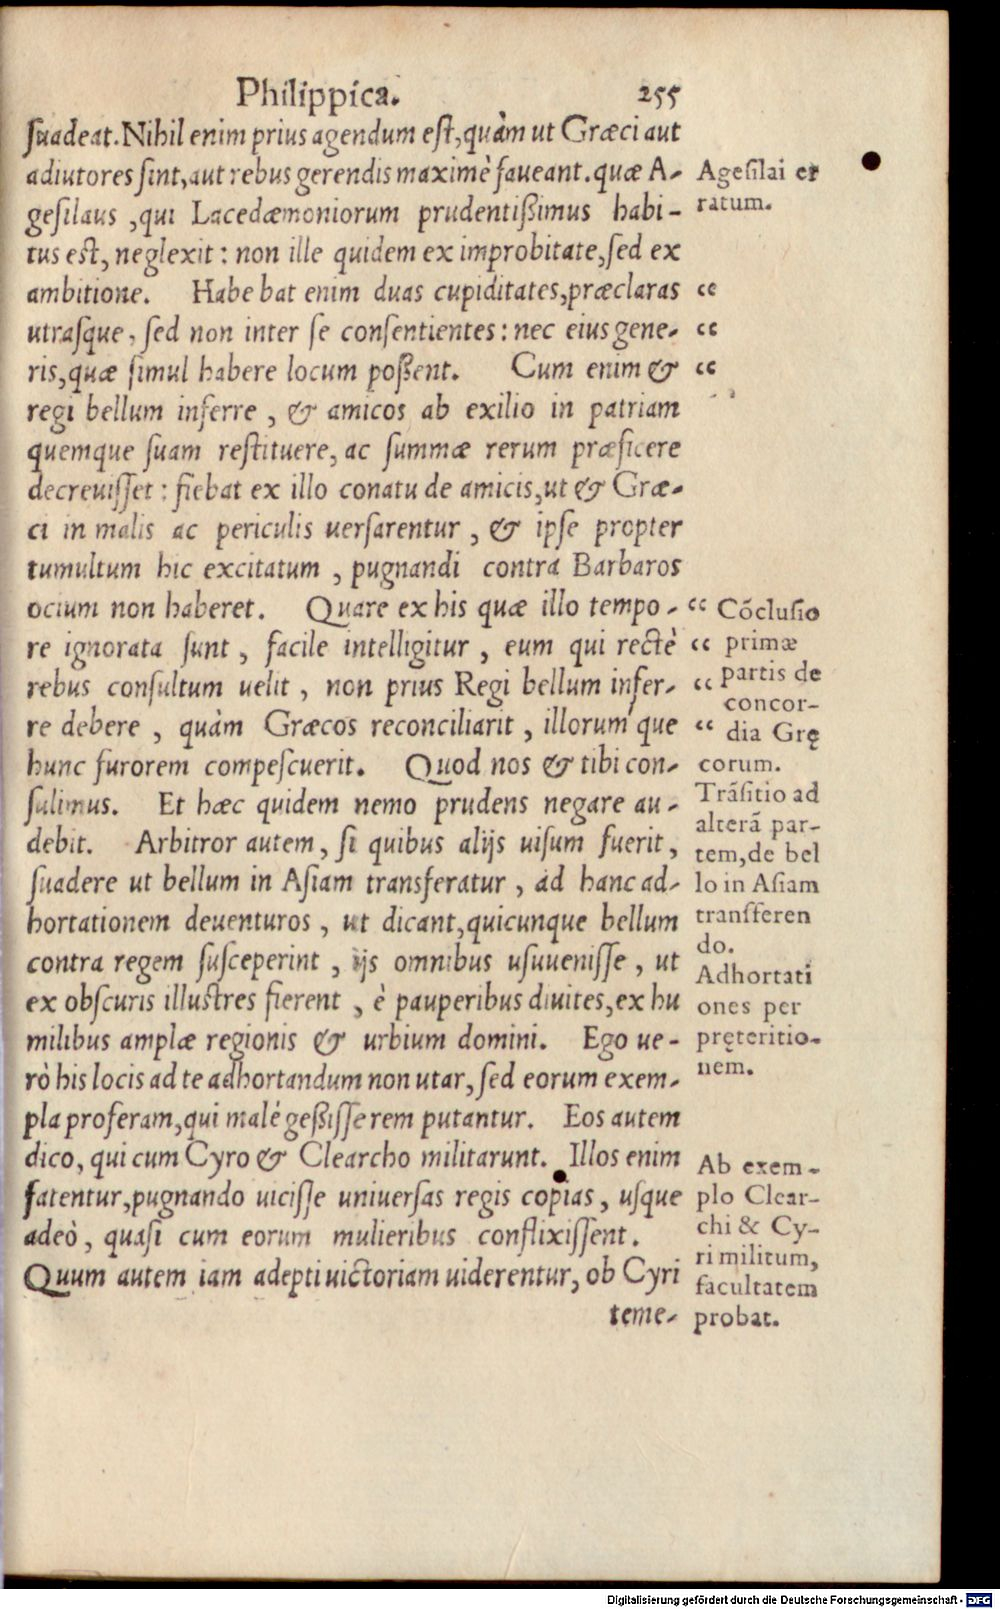 Philippica. 255
ſuadeat. Nihil enim prius agendum eſt, quàm ut Græci aut
adiutores ſint, aut rebus gerendis maximè faueant. quæ A-
geſilaus, qui Lacedæmoniorum prudentißimus habi-
tus eſt, neglexit: non ille quidem ex improbitate, ſed ex
ambitione. Habebat enim duas cupiditates, præclaras
utraſque, ſed non inter ſe conſentientes: nec eius gene-
ris, quæ ſimul habere locum poßent. Cum enim &
regi bellum inferre, & amicos ab exilio in patriam
quemque ſuam reſtituere, ac ſummæ rerum præficere
decreuiſſet: fiebat ex illo conatu de amicis, ut & Græ-
ci in malis ac periculis uerſarentur, & ipſe propter
tumultum hic excitatum, pugnandi contra Barbaros
ocium non haberet. Quare ex his quæ illo tempo-
re ignorata ſunt, facile intelligitur, eum qui rectè
rebus conſultum uelit, non prius Regi bellum infer-
re debere, quàm Græcos reconciliarit, illorum'que
hunc furorem compeſcuerit. Quod nos & tibi con-
ſulimus. Et hæc quidem nemo prudens negare au-
debit. Arbitror autem, ſi quibus alijs uiſum fuerit,
ſuadere ut bellum in Aſiam transferatur, ad hanc ad-
hortationem deuenturos, ut dicant, quicunque bellum
contra regem ſuſceperint, ijs omnibus uſuueniſſe, ut
ex obſcuris illuſtres fierent, è pauperibus diuites, ex hu
milibus amplæ regionis & urbium domini. Ego ue-
rò his locis ad te adhortandum non utar, ſed eorum exem-
pla proferam, qui malè geßiſſe rem putantur. Eos autem
dico, qui cum Cyro & Clearcho militarunt. Illos enim
fatentur, pugnando uiciſſe uniuerſas regis copias, uſque
adeò, quaſi cum eorum mulieribus conflixiſſent.
Quum autem iam adepti uictoriam uiderentur, ob Cyri
teme-
Ageſilai er
ratum.
“
“
“
“ Cõcluſio
“ primæ
“ partis de
concor-
“ dia Grę
corum.
Trãſitio ad
alterã par-
tem, de bel
lo in Aſiam
transferen
do.
Adhortati
ones per
pręteritio-
nem.
Ab exem-
plo Clear-
chi & Cy-
ri militum,
facultatem
probat.
Digitalisierung gefördert durch die Deutsche Forschungsgemeinschaft - DFG